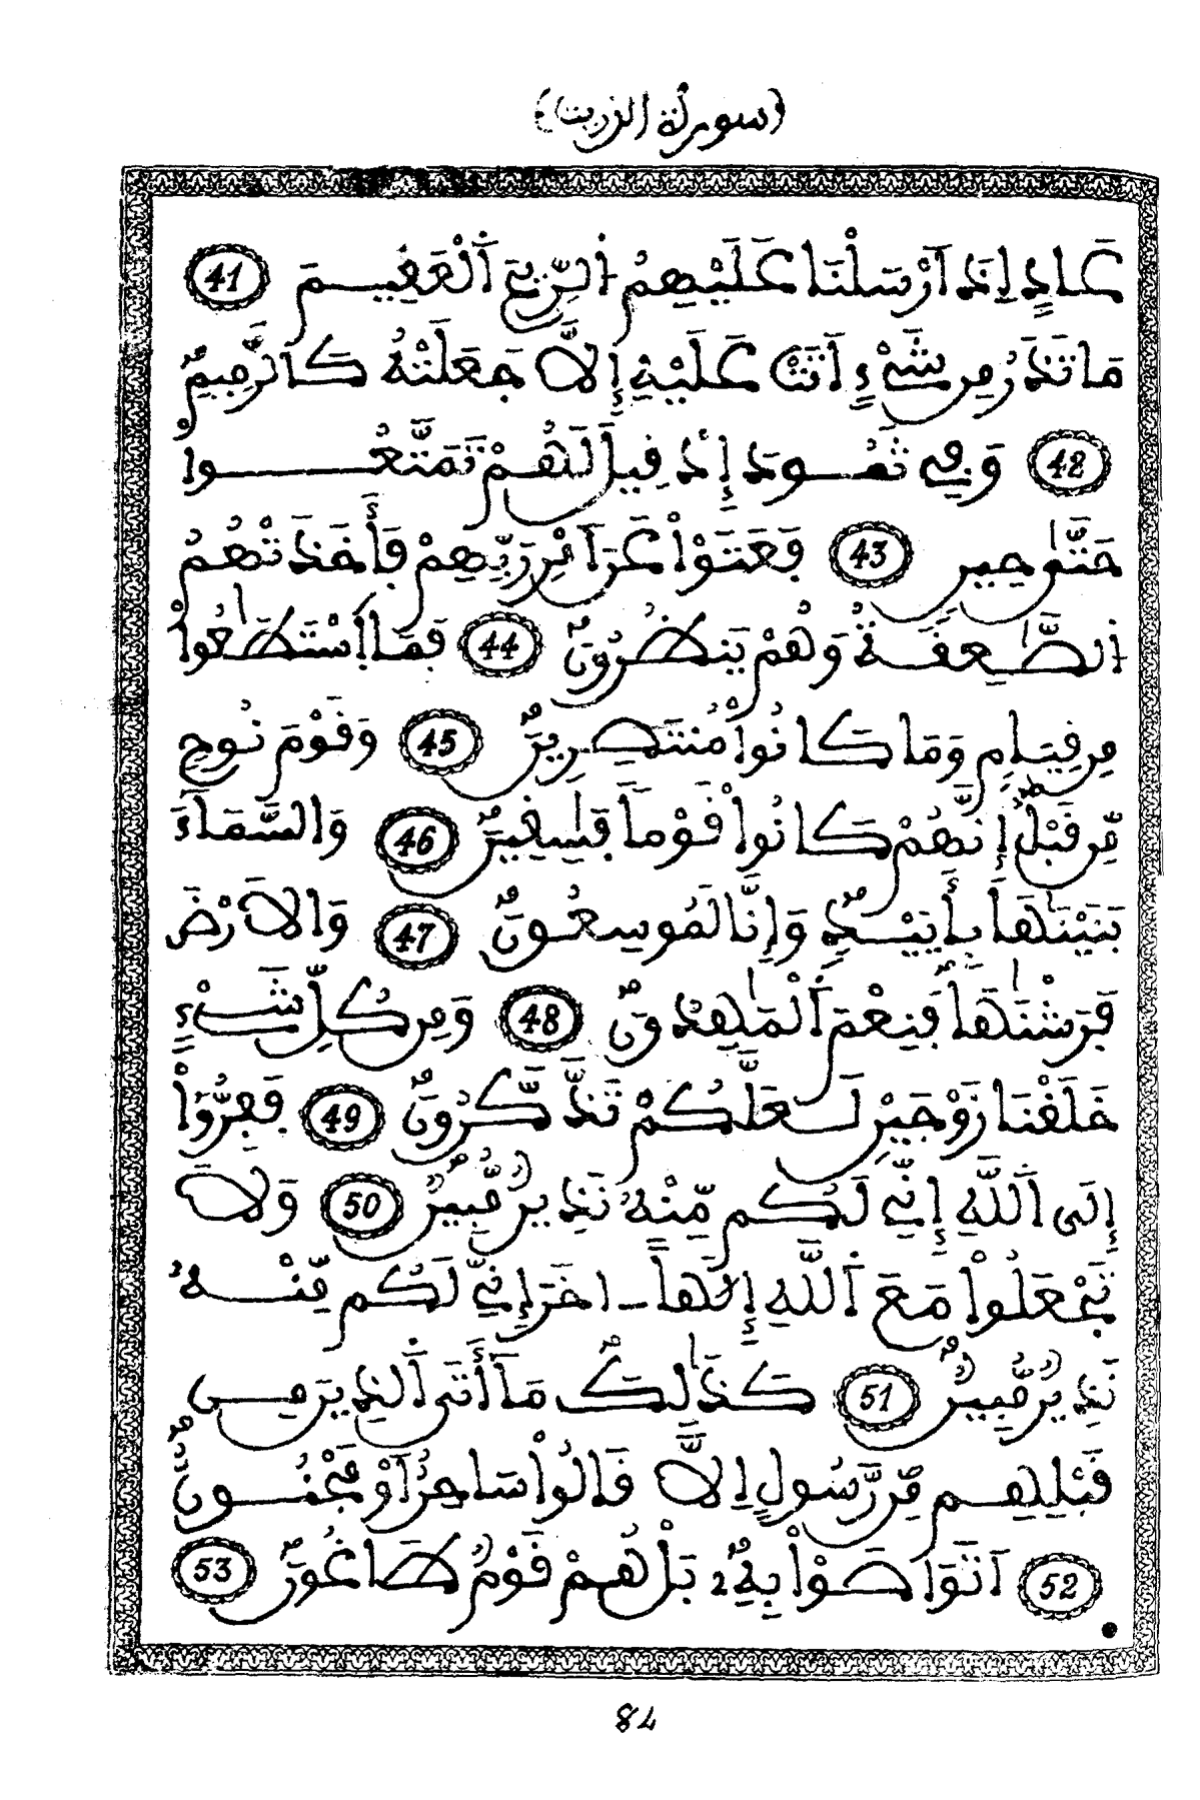 ﴿سورة الذريت﴾
عَادٍ اِذَ اَرْسَلْنَا عَلَيْهِمُ اُلرِّيحَ اَلْعَقِيمَ 41
مَا تَذَرُ مِن شَيْءٍ اَتَتْ عَلَيْهِ إِلَّا جَعَلَتْهُ كَالرَّمِيمِ
42 وَفِي ثَمُودَ إِذْ قِيلَ لَهُمْ تَمَتَّعُواْ
حَتَّىٰ حِينٍ 43 فَعَتَوْاْ عَنَ اَمْرِ رَبِّهِمْ فَأَخَذَتْهُمُ
اُلصَّٰعِقَةُ وَهُمْ يَنظُرُونَ 44 فَمَا اَسْتَطَٰعُواْ
مِن قِيَامٍ وَمَا كَانُواْ مُنتَصِرِينَ 45 وَقَوْمَ نُوحٍ
مِّن قَبْلُ إِنَّهُمْ كَانُواْ قَوْماً فَٰسِقِينَ 46 وَالسَّمَآءَ
بَنَيْنَٰهَا بِأَيْيْدٍ وَإِنَّا لَمُوسِعُونَ 47 وَالَارْضَ
فَرَشْنَٰهَا فَنِعْمَ اَلْمَٰهِدُونَ 48 وَمِن كُلِّ شَيْءٍ
خَلَقْنَا زَوْجَيْنِ لَعَلَّكُمْ تَذَّكَّرُونَ 49 فَفِرُّوٓاْ
إِلَى اَللَّهِ إِنِّي لَكُم مِّنْهُ نَذِيرٌ مُّبِينٌ 50 وَلَا
تَجْعَلُواْ مَعَ اَللَّهِ إِلَٰهاً - اخَرَ إِنِّي لَكُم مِّنْهُ
نَذِيرٌ مُّبِينٌ 51 كَذَٰلِكَ مَآ أَتَى اَلذِينَ مِن
قَبْلِهِم مِّن رَّسُولٍ اِلَّا قَالُواْ سَاحِرٌ اَوْ مَجْنُونٌ
52 اَتَوَاصَوْاْ بِهِۦ بَلْ هُمْ قَوْمٌ طَاغُونَ 53
84